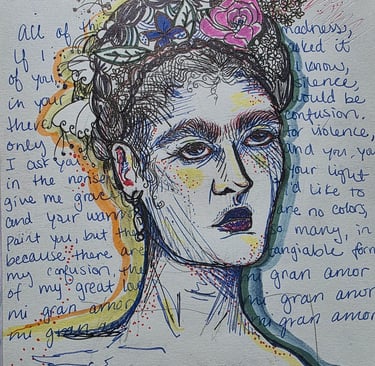 All of th madness,
If I asked it
of you know,
in your silence,
then would be
only confusion.
I ask you for violence,
in the nonse and you, yo
give me grac your light
and your warm d like to
paint you, but the are no colors
because there are so many, in
my confusion, the tangiable form
of my great lov mi gran amor
mi gran amor mi gran amor
mi gran a mi gran amor